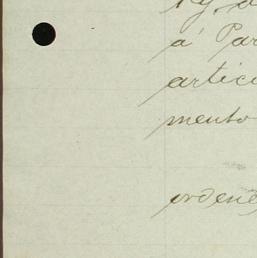 á Par
artic
mento
ordene